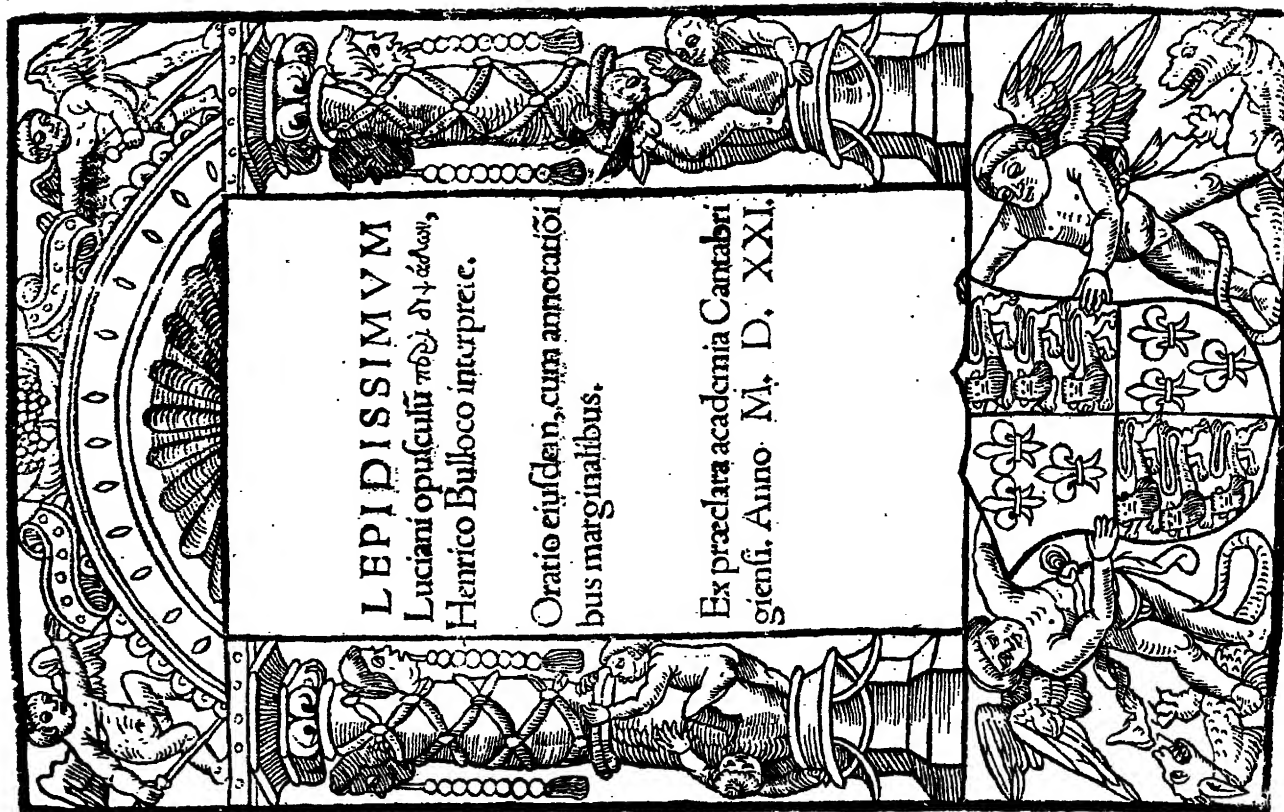 LEPIDISSIMVM
Luciani opuſculū περὶ διψάδων,
Henrico Bulloco interprete.
Oratio eiuſdem, cum annotatiōi
bus marginalibus.
Ex præclara academia Cantabri
gienſi. Anno M. D. XXI.